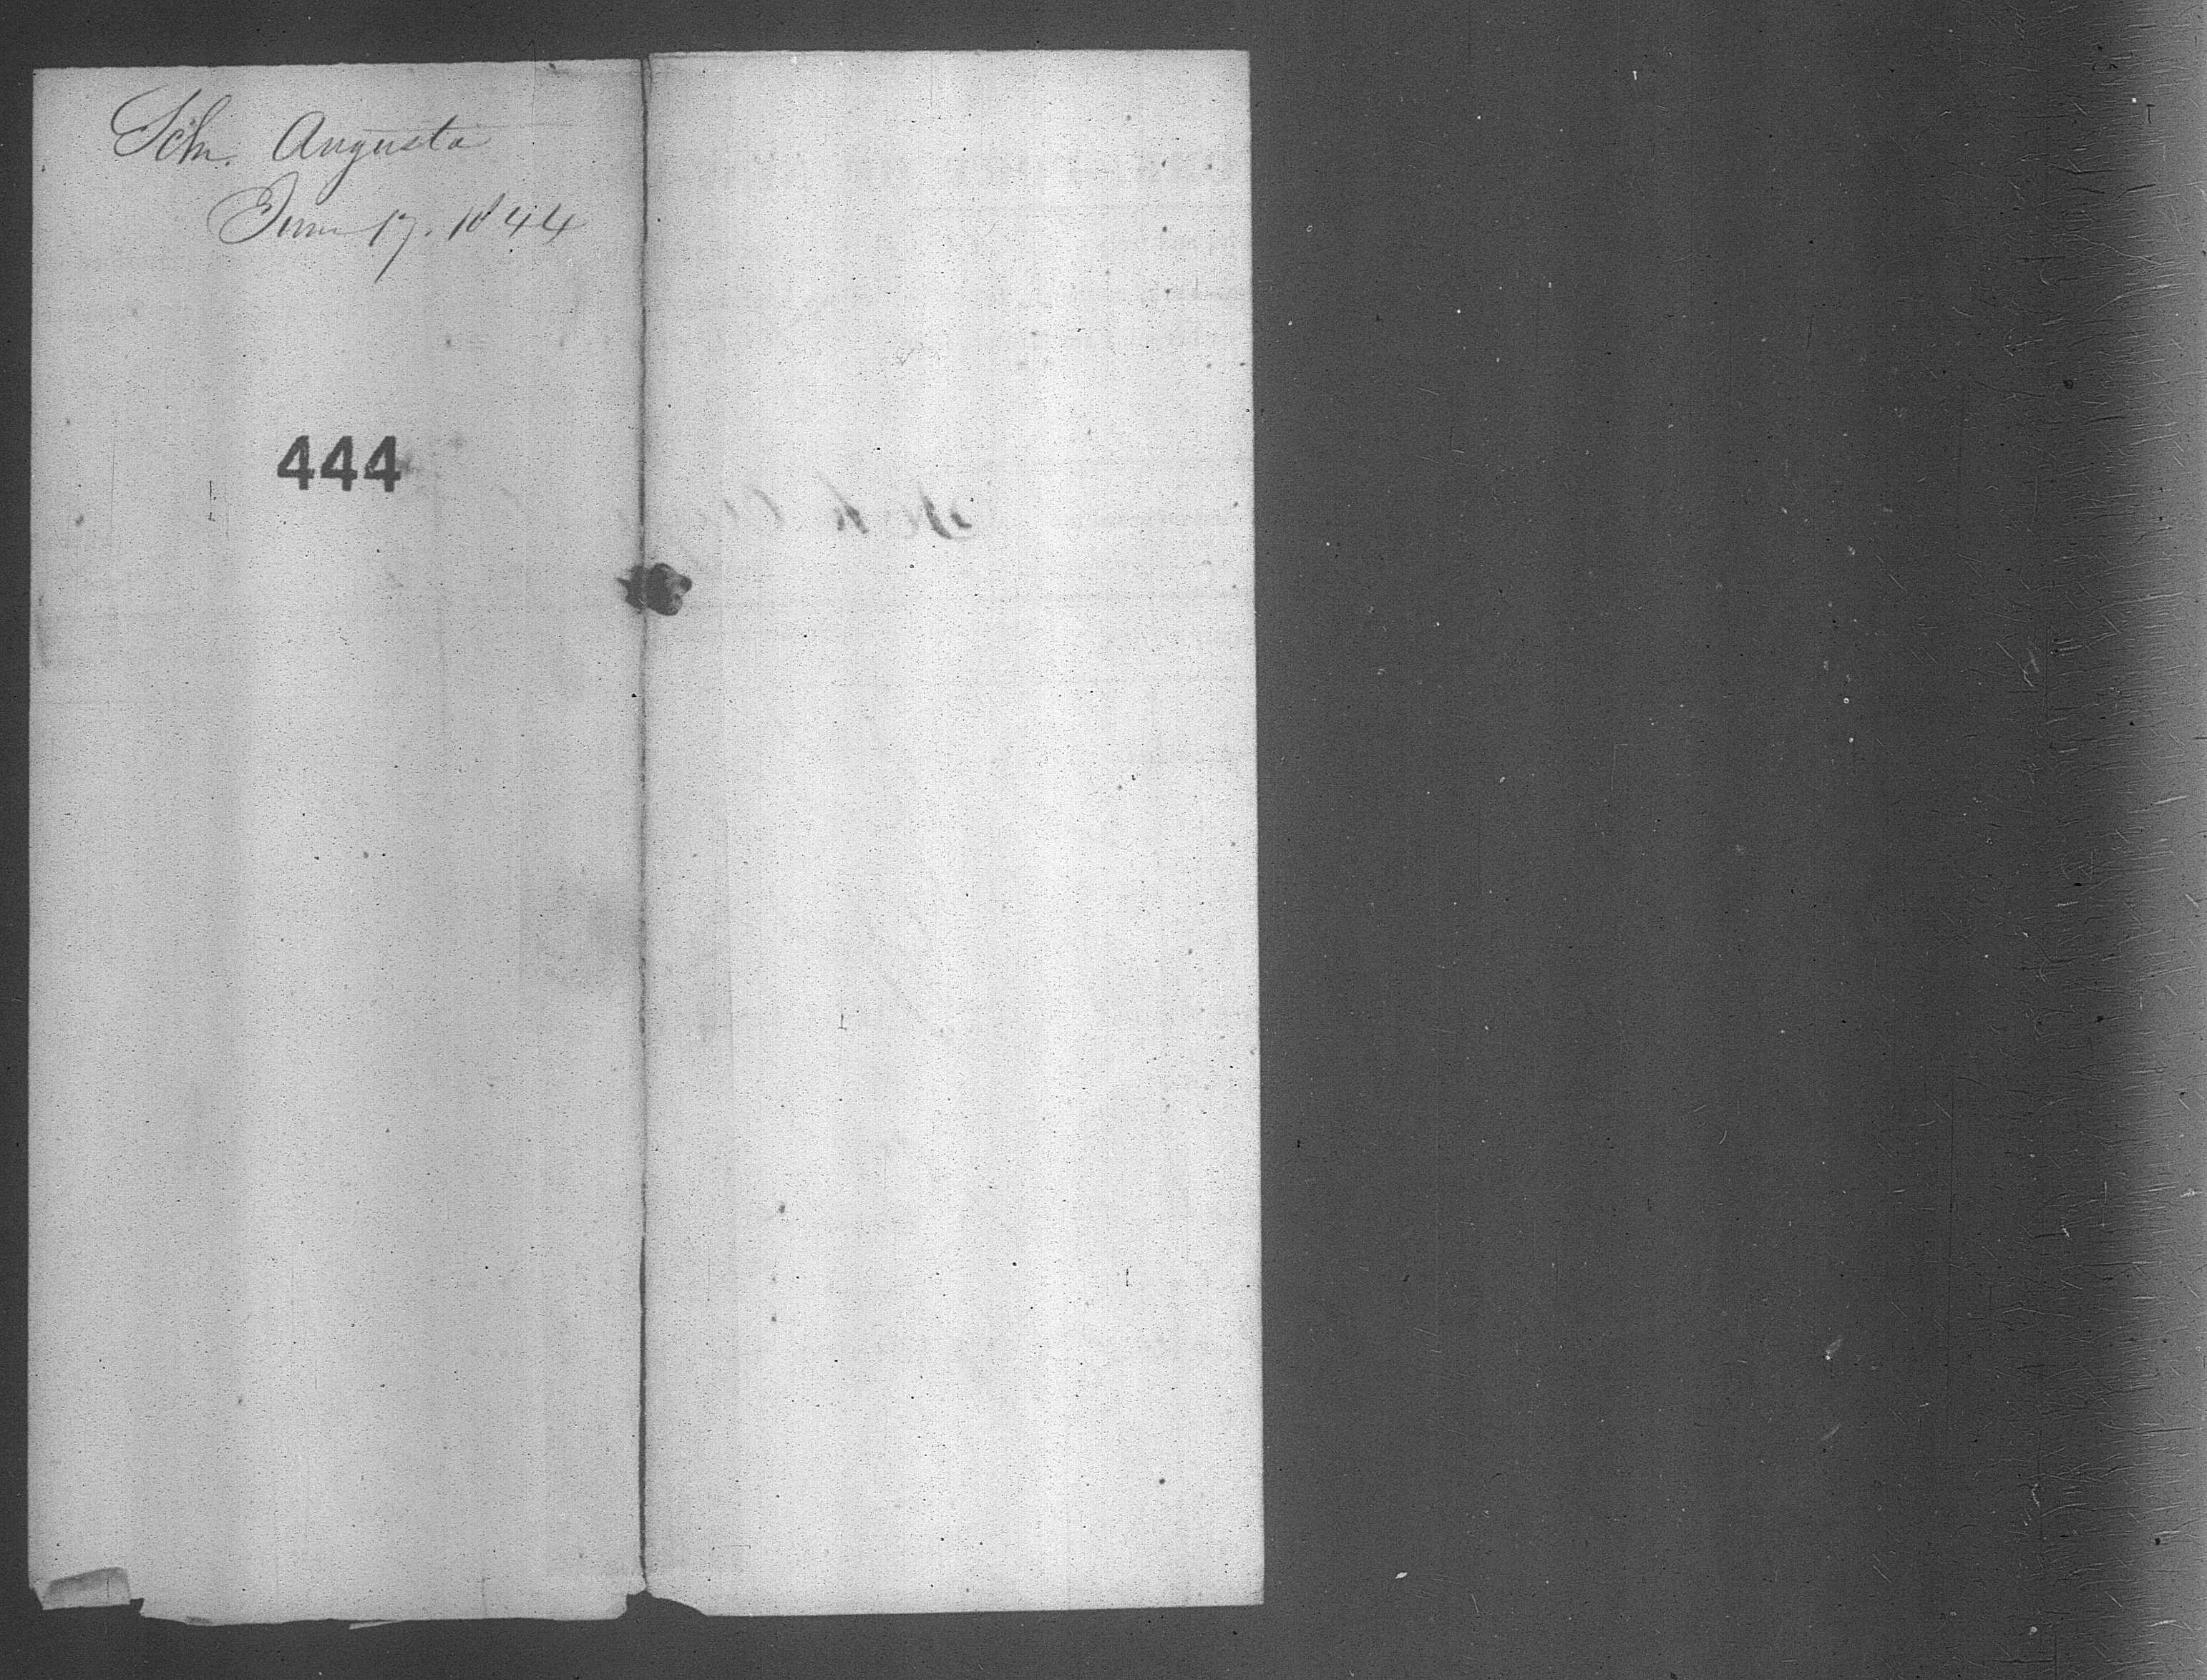 Sch. Augusta
June 17. 1844
444